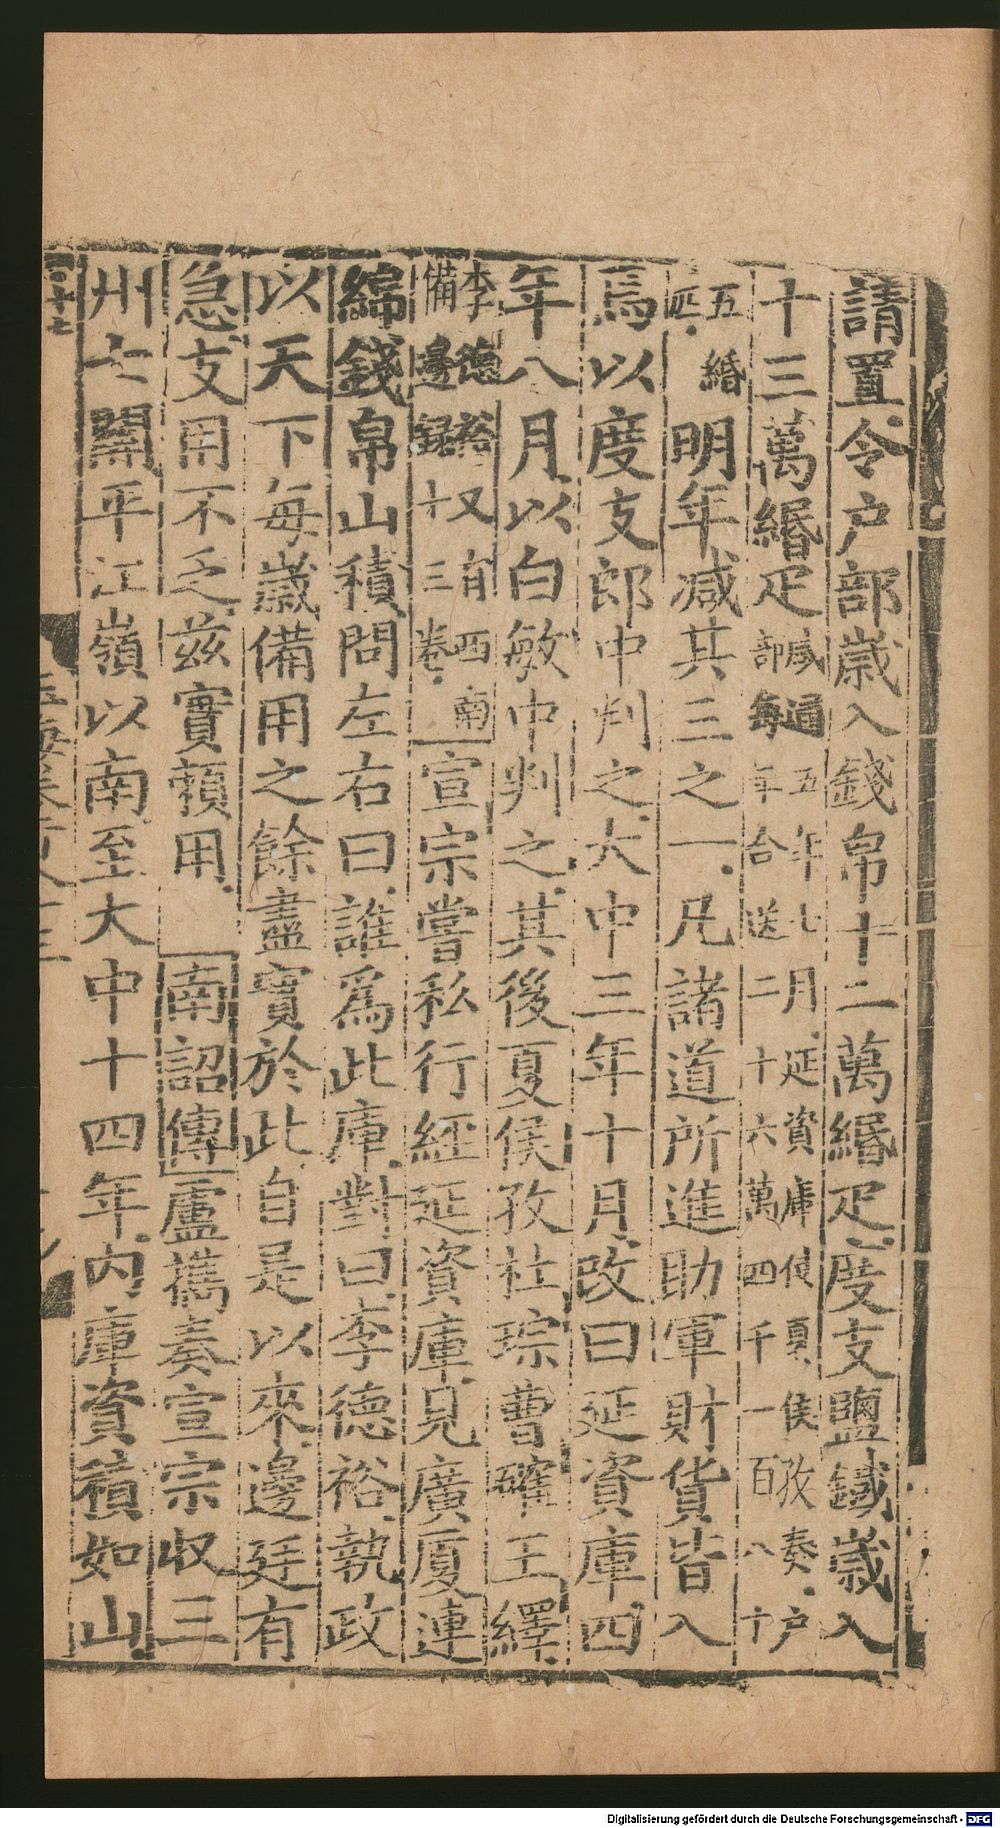 請置令户部歲入錢帛十二萬緡疋度支鹽鐵歲入
十三萬緡疋咸通五年七月延資庫使夏侯孜奏户部每年合送二十六萬四千一百八十
五緡疋明年減其三之一凡諸道所進助軍財貨皆入
焉以度支郎中判之大中三年十月改曰延資庫四
年八月以白敏中判之其後夏侯孜杜琮曹確王繹
李德裕又有西南備邊録十三卷宣宗嘗私行經延資庫見廣厦連
綿錢帛山積問左右曰誰爲此庫對曰李德裕執政
以天下每歲備用之餘盡實於此自是以來邊廷有
急支用不乏兹實賴用南詔傳盧攜奏宣宗收三
州七關平江嶺以南至大中十四年内庫資積如山
Digitalisierung gefördert durch die Deutsche Forschungsgemeinschaft - DFG